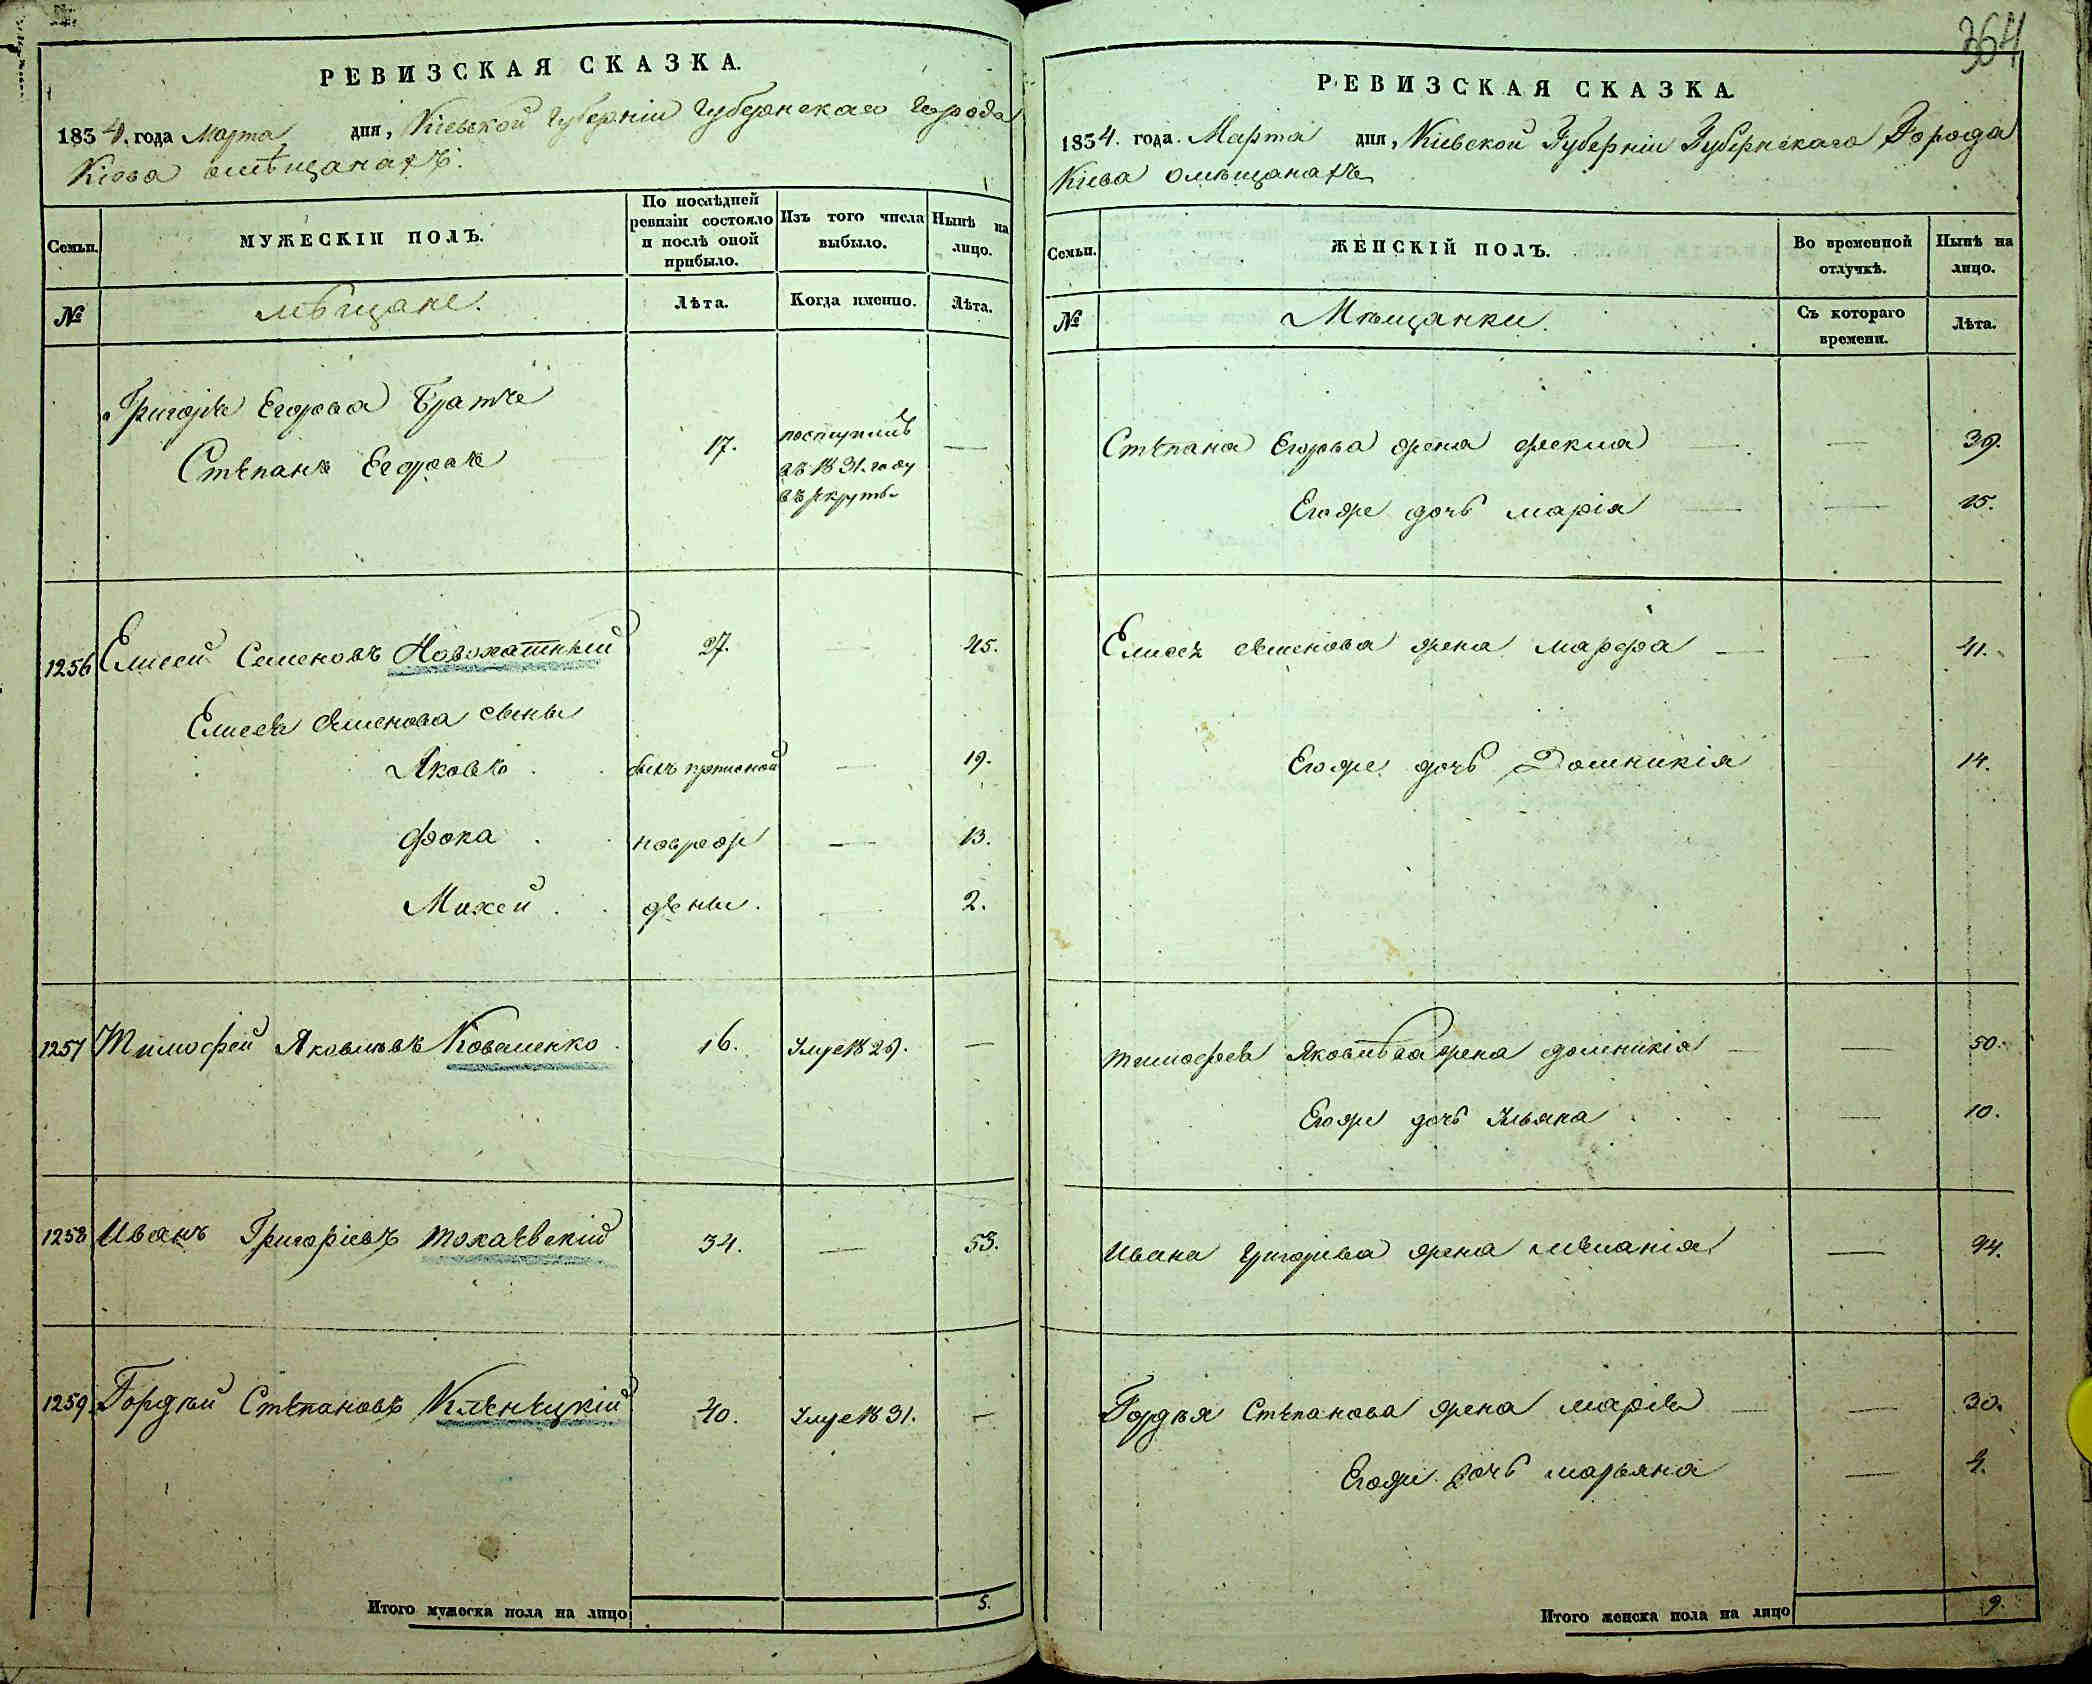 РЕВИЗСКАЯ СКАЗКА.
1834. года Марта дня, Кіевской Губерніи Губернскаго Города
Кіева омѣщанахъ.
Семьи.
МУЖЕСКІЙ ПОЛЪ.
По послѣдней ревизіи состояло и послѣ оной прибыло.
Изъ того числа выбыло.
Нынѣ на лицо.
№
мѣщане.
Лѣта.
Когда именно.
Лѣта.
Григорія Егорова Братъ
Стѣпанъ Егоровъ 17. поступилъ въ 1831. году въ рекруты —
1256 Елисей Семеновъ Новохатный 27. — 45.
Елисея Семенова сыны
Яковъ . былъ прописной — 19.
Фока . новорож — 13.
Михей . . дены . 2.
1257 Тимофей Яковлевъ Коваленко . 16. Умре 1829. —
1258 Иванъ Григоріевъ Токаѣвскій 34. — 53.
1259. Гордѣй Стѣпановъ 40. Умре 1831. —
Итого мужеска пола на лицо 5.
364
РЕВИЗСКАЯ СКАЗКА.
1834. года. Марта дня, Кіевской Губерніи Губернскаго Города
Кіева омѣщанахъ
Семьи.
ЖЕНСКІЙ ПОЛЪ.
Во временной отлучкѣ.
Нынѣ на лицо.
№
Мѣщанки.
Съ котораго времени.
Лѣта.
Стѣпана Егорова жена Фекла — — 39.
Егоже дочь Марія — — 15.
Елисея Семенова жена Марфа — — 41.
Егоже дочь Домникія 14.
Тимофея Яковлева жена Домникія — — 50.
Егоже дочь Ульяна . . . — 10.
Ивана Григорьева жена — 44.
Гордѣя Стѣпанова жена Марія — — 30.
Егоже дочь Марьяна — 4.
Итого женска пола на лицо 9.